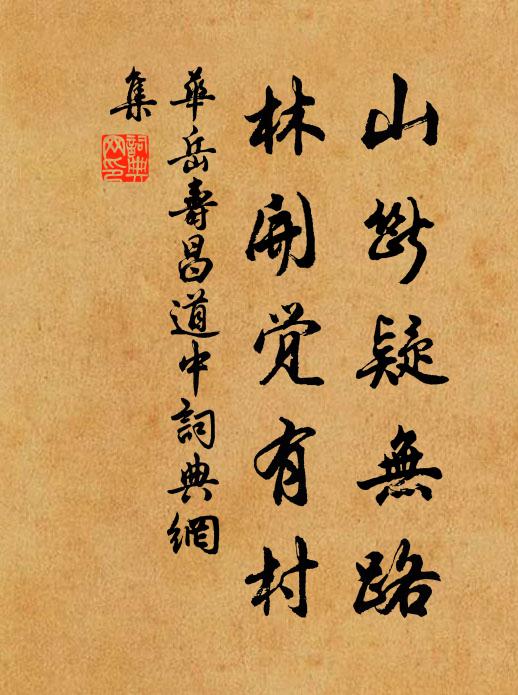 山斷疑無路
林開覺有村
華岳壽昌道中詞典網
集
詞典
网印